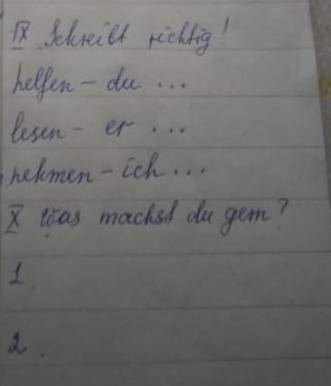 IX Schreibt richtig!
helfen - du ...
lesen - er ...
nehmen - ich ...
X Was machst du gern?
1.
2.